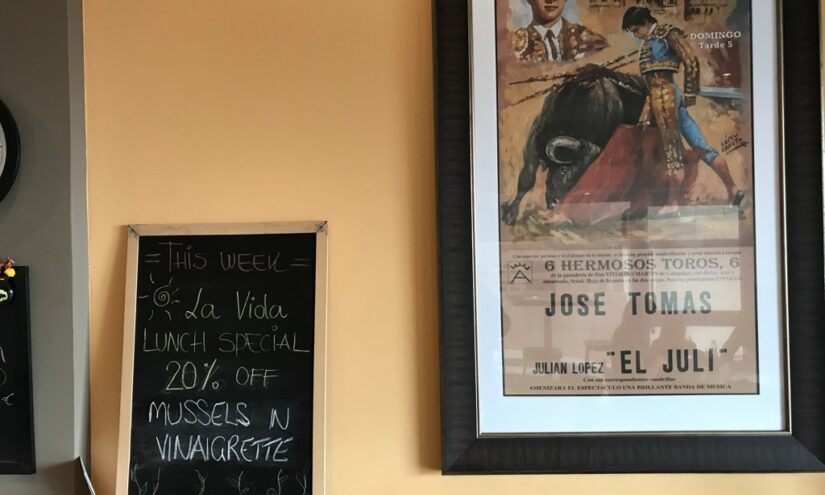 = THIS WEEK =
La Vida
LUNCH SPECIAL
20% OFF
MUSSELS IN
VINAIGRETTE
DOMINGO
Tarde 5
6 HERMOSOS TOROS, 6
JOSE TOMAS
JULIAN LOPEZ "EL JULI"
Con sus correspondientes cuadrillas
AMENIZARA EL ESPECTACULO UNA BRILLANTE BANDA DE MUSICA